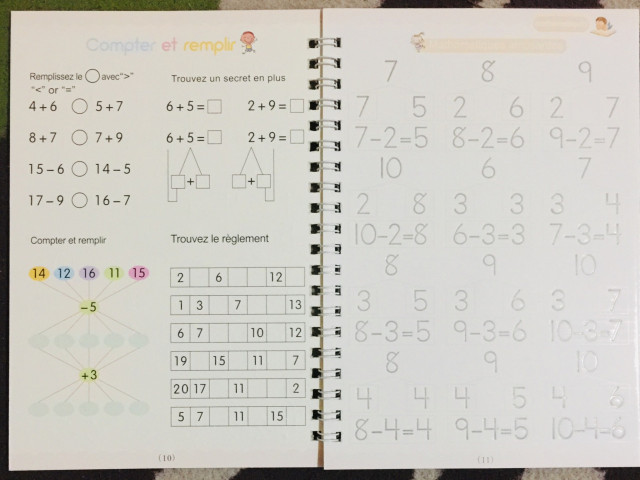 Compter et remplir
Remplissez le ◯ avec ">"
"<" or "="
4+6 ◯ 5+7
8+7 ◯ 7+9
15−6 ◯ 14−5
17−9 ◯ 16−7
Trouvez un secret en plus
6+5=□ 2+9=□
6+5=□ 2+9=□
□+□ □+□
Compter et remplir
14 12 16 11 15
−5
+3
Trouvez le règlement
2 6 12
1 3 7 13
6 7 10 12
19 15 11 7
20 17 11 2
5 7 11 15
(10)
7 8 9
7 5 2 6 2 7
7−2=5 8−2=6 9−2=7
10 6 7
2 8 3 3 3 4
10−2=8 6−3=3 7−3=4
8 9 10
3 5 3 6 3 7
8−3=5 9−3=6 10−3=7
8 9 10
4 4 4 5 4 6
8−4=4 9−4=5 10−4-6
(11)